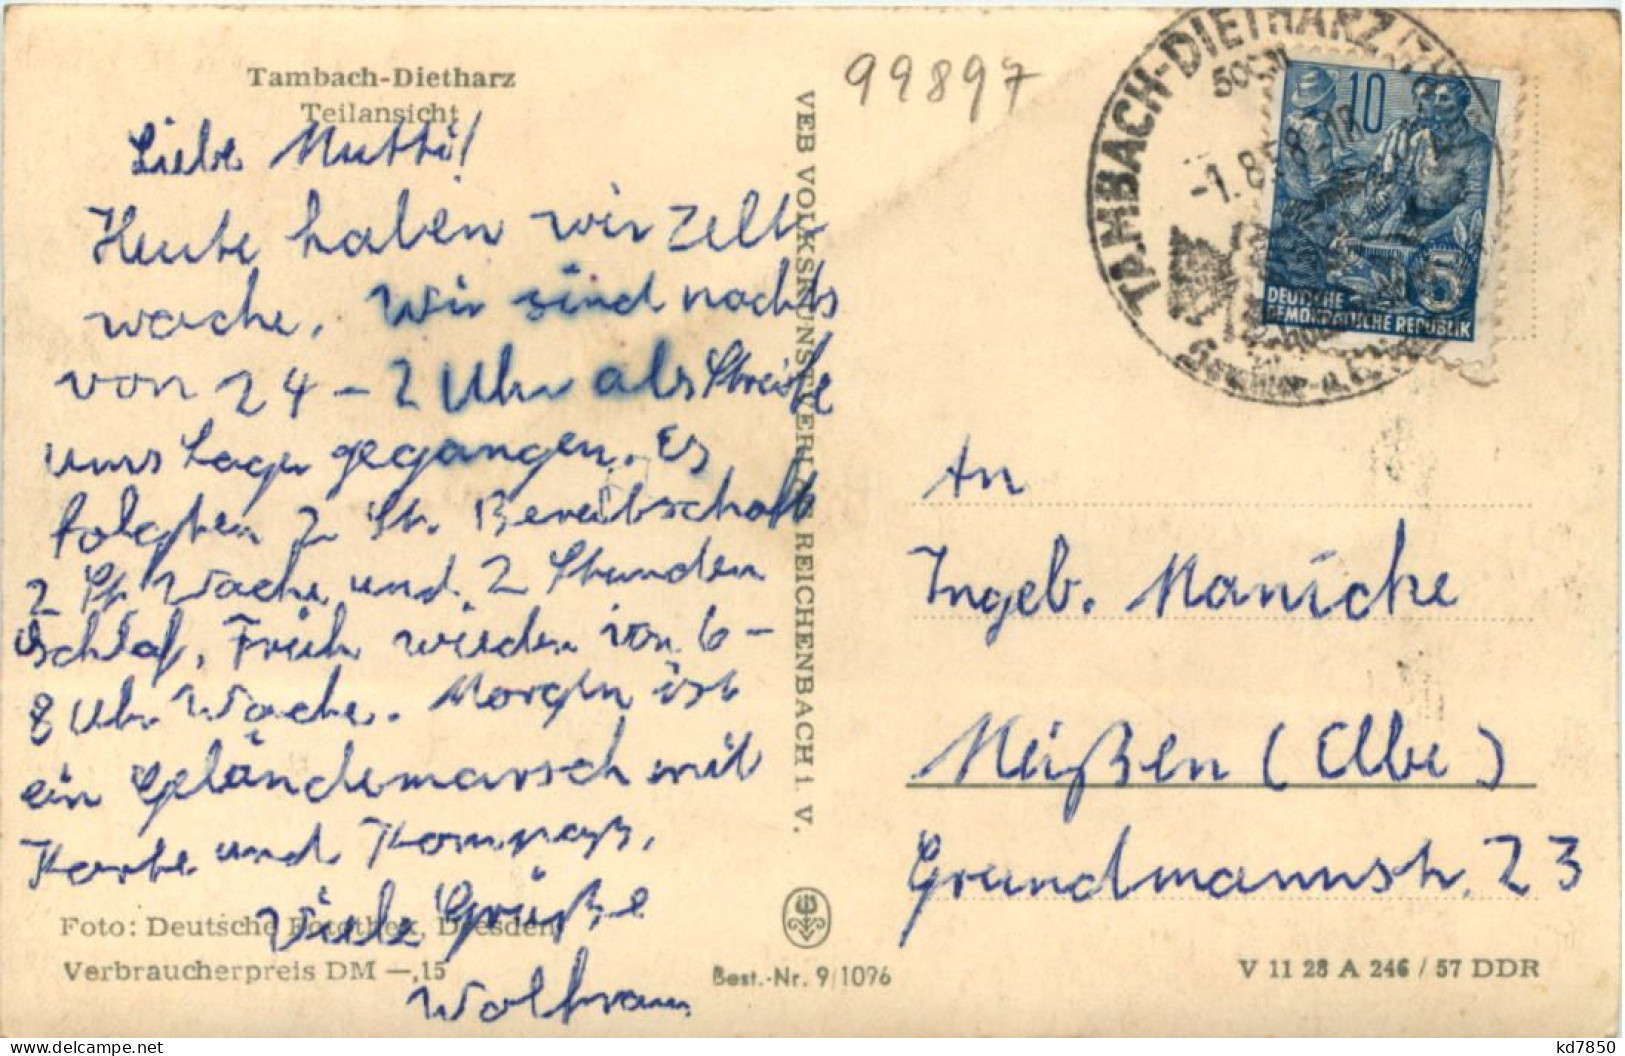 Tambach-Dietharz
Teilansicht
Liebe Mutti!
Heute haben wir Zelt-
wache. Wir sind nachts
von 24 - 2 Uhr als Streife
ums Lager gegangen. Es
folgten 2 St. Bereitschaft
2 St. Wache und 2 Stunden
Schlaf. Früh wieder von 6-
8 Uhr Wache. Morgen ist
ein Geländemarsch mit
Karte und Kompaß.
Viele Grüße
Wolfram
Foto: Deutsche Fotothek, Dresden
Verbraucherpreis DM —,15
Best.-Nr. 9/1076
VEB VOLKSKUNSTVERLAG REICHENBACH i. V.
99897
TAMBACH-DIETHARZ
-1.8.58
10
5
DEUTSCHE
DEMOKRATISCHE REPUBLIK
An
Ingeb. Manicke
Meißen (Elbe)
Grundmannstr. 23
V 11 28 A 246 / 57 DDR
www.delcampe.net
kd7850